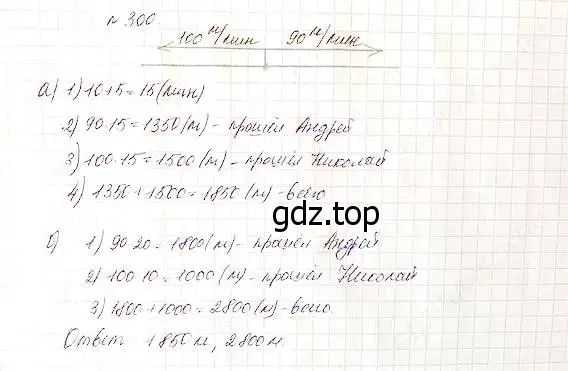 № 300.
100 м/мин 90 м/мин
а) 1) 10+5=15 (мин)
2) 90·15=1350 (м) - прошёл Андрей
3) 100·15=1500 (м) - прошёл Николай
4) 1350+1500=1850 (м) - всего
gdz.top
б) 1) 90·20=1800 (м) - прошёл Андрей
2) 100·10=1000 (м) - прошёл Николай
3) 1800+1000=2800 (м) - всего.
Ответ 1850 м, 2800 м.